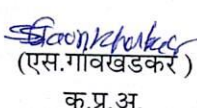 (एस.गोवखडकर )
क.प्र.अ.